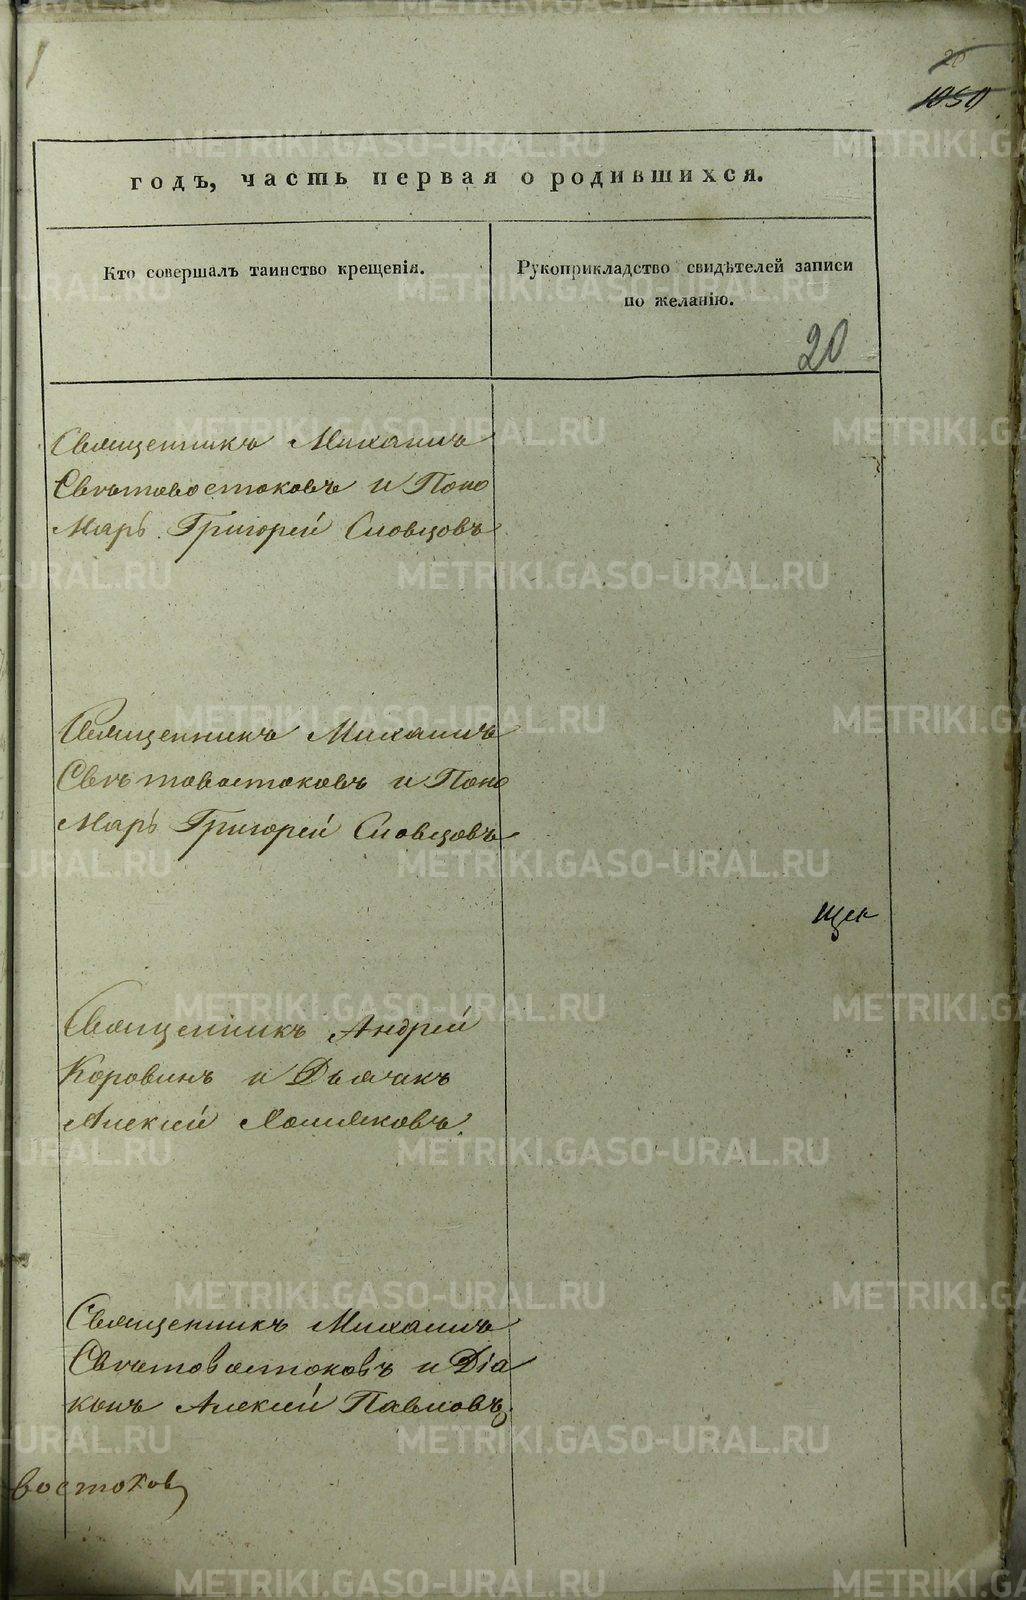 20
1050
годъ, часть первая о родившихся.
Кто совершалъ таинство крещенія.
Рукоприкладство свидѣтелей записи
по желанію.
20
Священникъ Михаилъ
Свѣтовостоковъ и Поно
марь Григорей Словцовъ
Священникъ Михаилъ
Свѣтовостоковъ и Поно
марь Григорей Словцовъ
Священникъ Андрей
Коровинъ и Дьячекъ
Алексей Хомяковъ.
Священникъ Михаилъ
Свѣтовостоковъ и Діа
конъ Алексей Павловъ.
востоков
METRIKI.GASO-URAL.RU